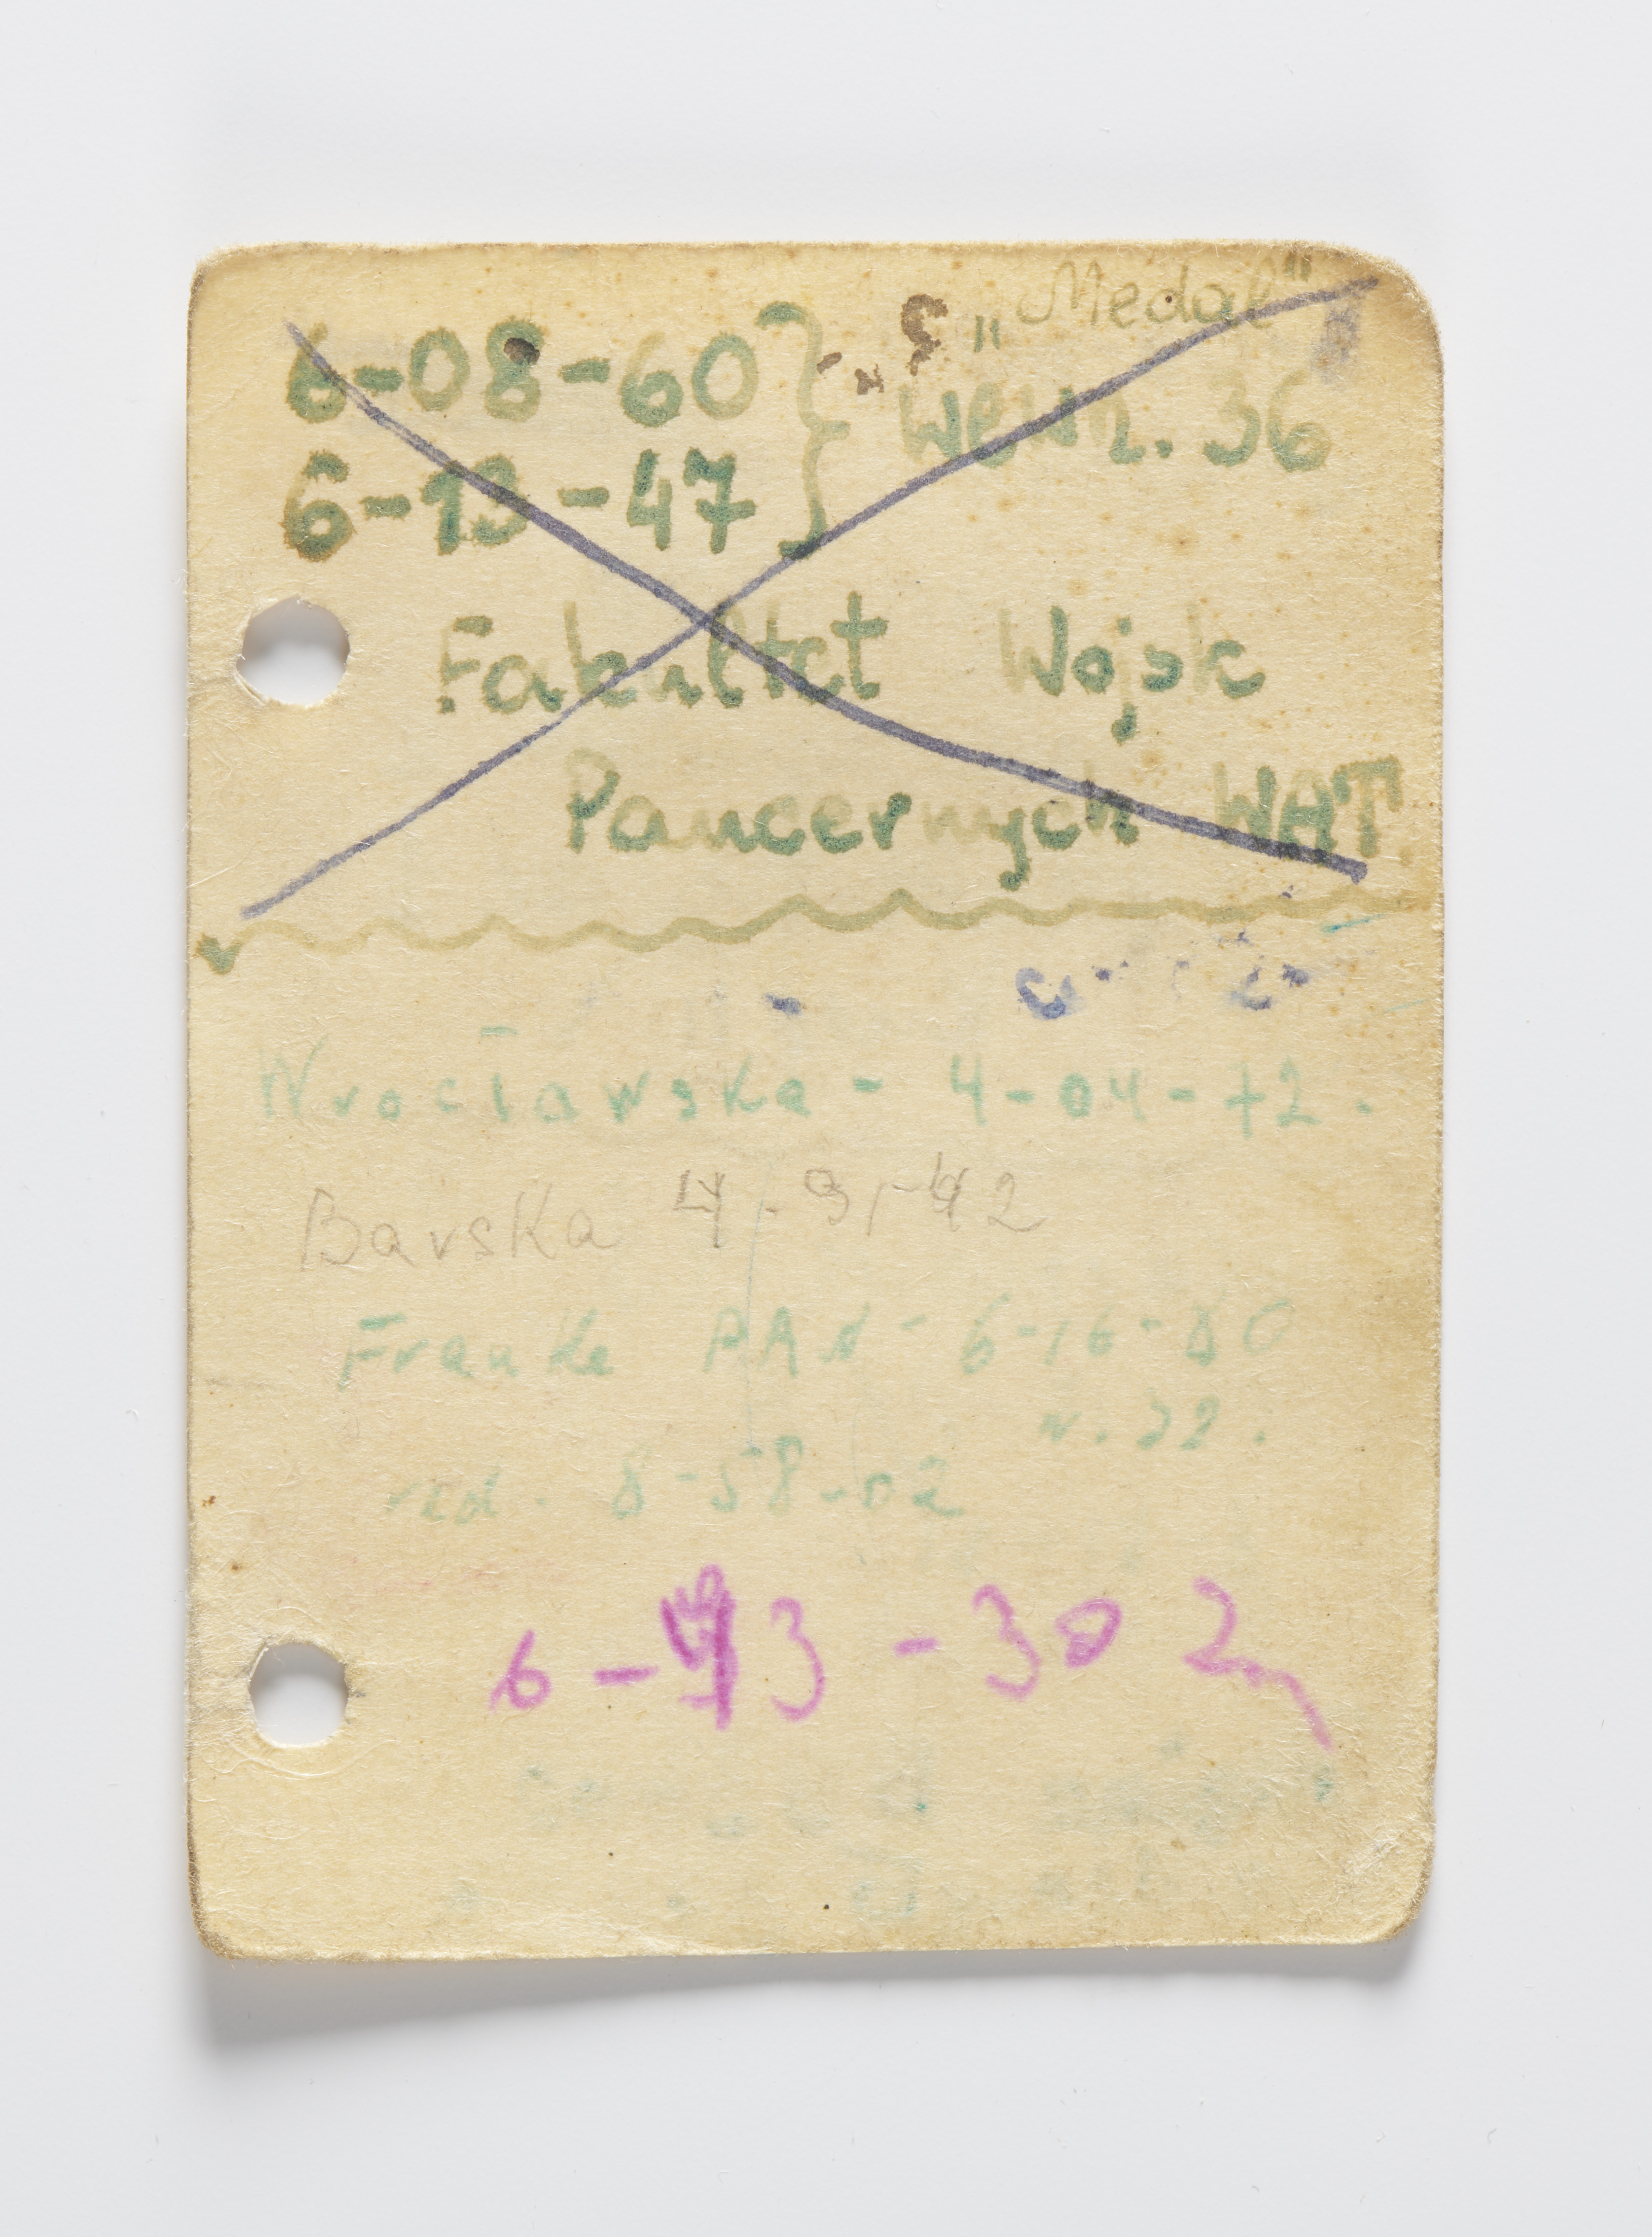 „Medal"
6-08-60
6-13-47 } wewn. 36
Fakultet Wojsk
Pancernych WAT
Wrocławska - 4-04-72.
Barska 4-
Franke PAN - 6-16-80
w. 22.
red. 8-58-02
6- 3-30